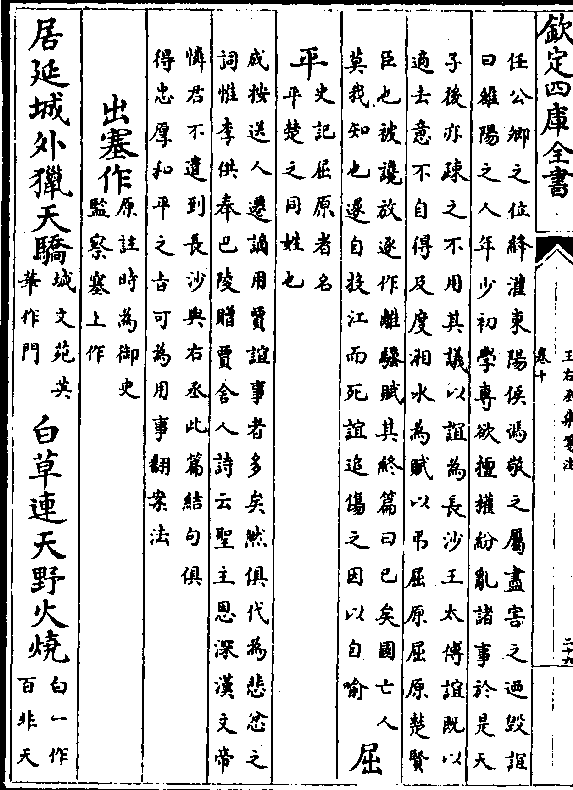 欽定四庫全書
卷十
二十九
任公卿之位絳灌東陽侯馮敬之屬盡害之迺毀誼
曰雒陽之人年少初學專欲擅權紛亂諸事於是天
子後亦疎之不用其議以誼為長沙王太傅誼既以
適去意不自得及度湘水為賦以弔屈原屈原楚賢
臣也被讒放逐作離騷賦其終篇曰已矣國亡人
莫我知也遂自投江而死誼追傷之因以自喻
屈
平
史記屈原者名
平楚之同姓也
成按送人遷謫用賈誼事者多矣然俱代為悲忿之
詞惟李供奉巴陵贈賈舍人詩云聖主恩深漢文帝
憐君不遣到長沙與右丞此篇結句俱
得忠厚和平之㫖可為用事翻案法
出塞作
原註時為御史
監察塞上作
居延城外獵天驕
城文苑英
華作門
白草連天野火燒
白一作
百非天